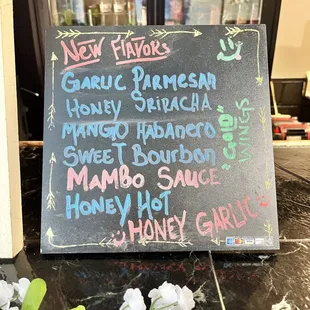 New Flavors
Garlic Parmesan
Honey Sriracha
Mango Habanero
Sweet Bourbon
Mambo Sauce
Honey Hot
Honey Garlic
"Gold"
Wings